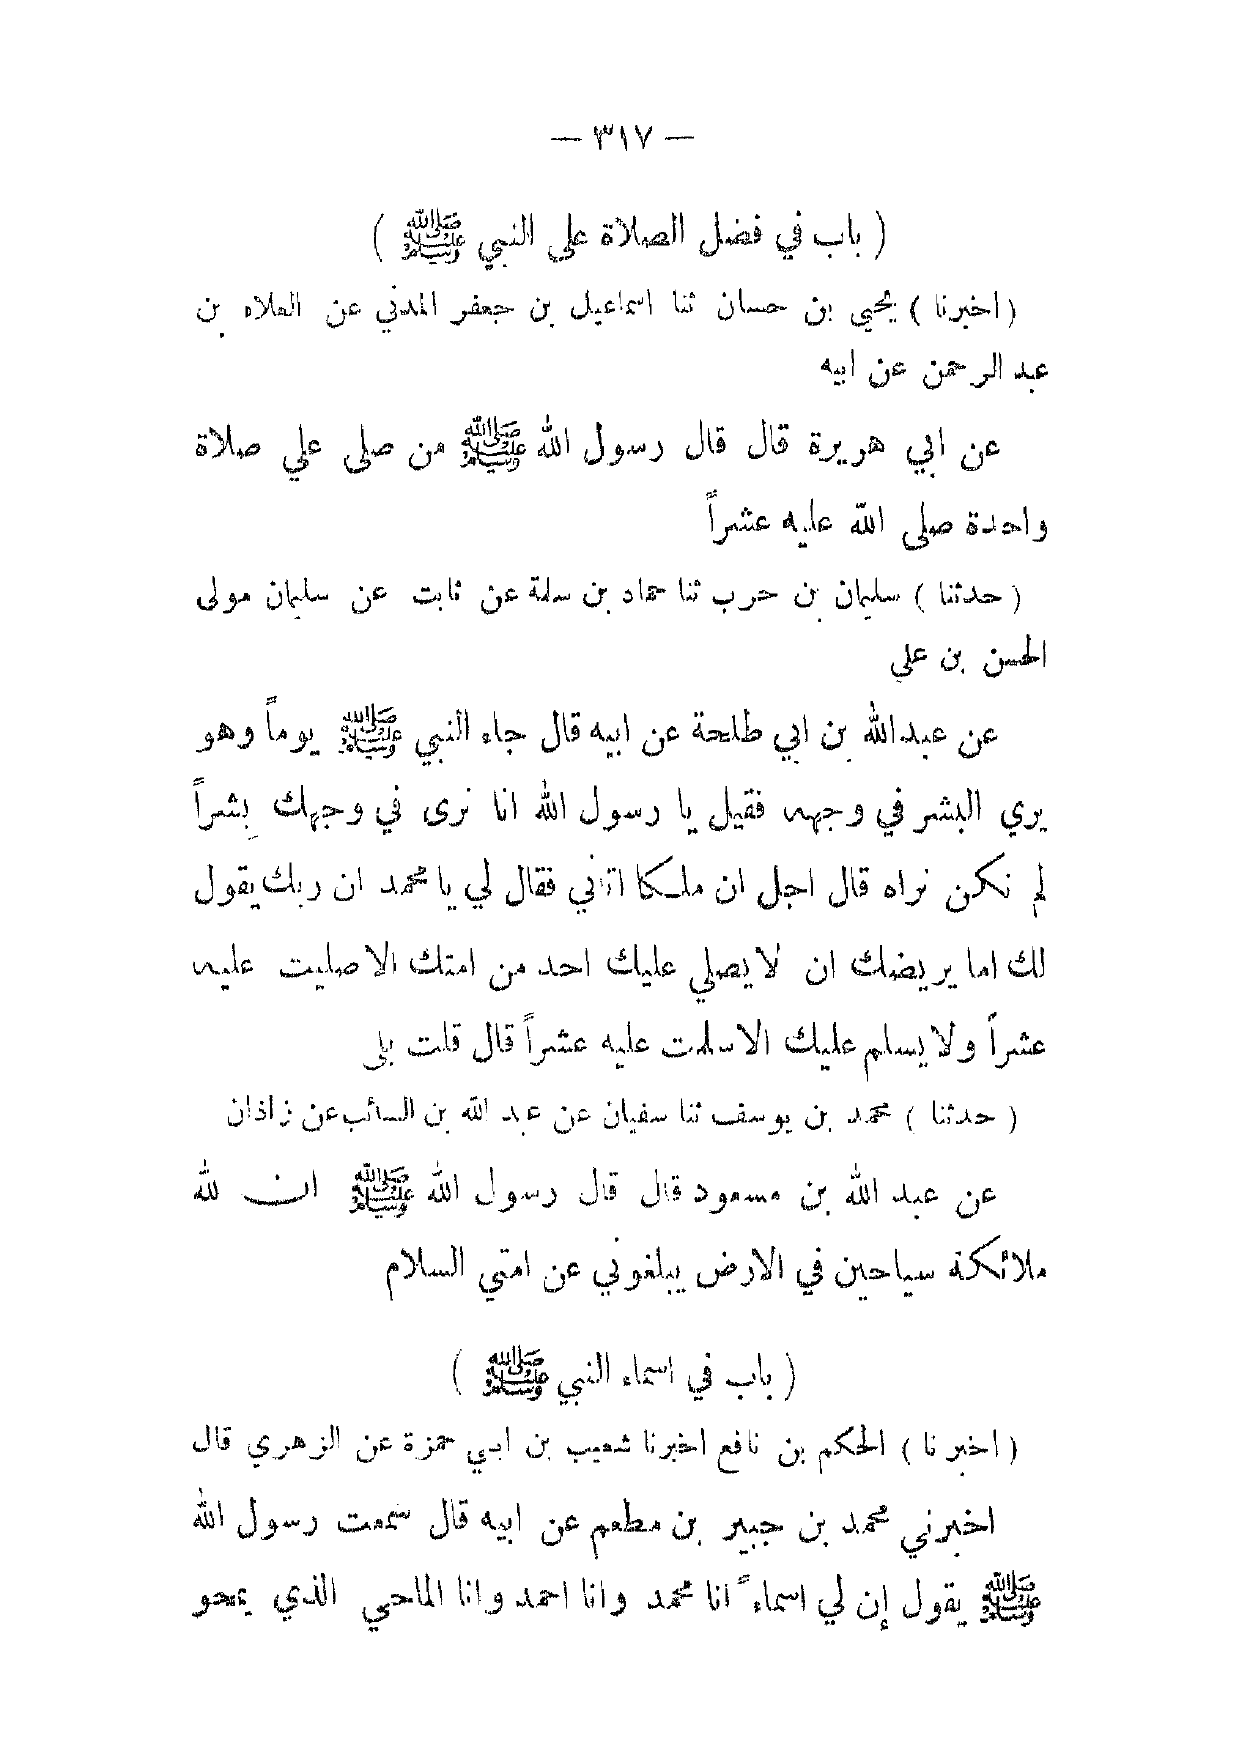 — ٣١٧ —
( باب في فضل الصلاة على النبي ﷺ )
( اخبرنا ) يحيى بن حسان ثنا اسماعيل بن جعفر المدني عن العلاء بن
عبد الرحمن عن ابيه
عن ابي هريرة قال قال رسول الله ﷺ من صلى علي صلاة
واحدة صلى الله عليه عشراً
( حدثنا ) سليمان بن حرب ثنا حماد بن سلمة عن ثابت عن سليمان مولى
الحسن بن علي
عن عبدالله بن ابي طلحة عن ابيه قال جاء النبي ﷺ يوماً وهو
يري البشر في وجهه فقيل يا رسول الله انا نرى في وجهك بشراً
لم نكن نراه قال اجل ان ملكا اتاني فقال لي يا محمد ان ربك يقول
لك اما يرضيك ان لا يصلي عليك احد من امتك الا صليت عليه
عشراً ولا يسلم عليك الا سلمت عليه عشراً قال قلت بلى
( حدثنا ) محمد بن يوسف ثنا سفيان عن عبد الله بن السائب عن زاذان
عن عبد الله بن مسعود قال قال رسول الله ﷺ ان لله
ملائكة سياحين في الارض يبلغوني عن امتي السلام
( باب في اسماء النبي ﷺ )
( اخبرنا ) الحكم بن نافع اخبرنا شعيب بن ابي حمزة عن الزهري قال
اخبرني محمد بن جبير بن مطعم عن ابيه قال سمعت رسول الله
ﷺ يقول إن لي اسماءً انا محمد وانا احمد وانا الماحي الذي يمحو